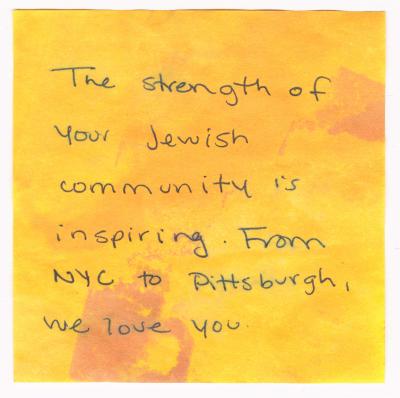 The strength of
your Jewish
community is
inspiring. From
NYC to Pittsburgh,
we love you.